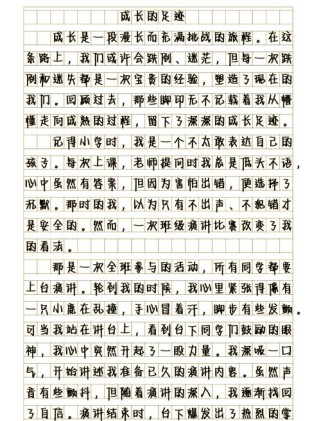 成长的足迹
成长是一段漫长而充满挑战的旅程。在这
条路上，我们或许会跌倒、迷茫，但每一次跌
倒和迷失都是一次宝贵的经验，塑造了现在的
我们。回顾过去，那些脚印无不记载着我从懵
懂走向成熟的过程，留下了深深的成长足迹。
记得小学时，我是一个不太敢表达自己的
孩子。每次上课，老师提问时我总是低头不语，
心中虽然有答案，但因为害怕出错，便选择了
沉默。那时的我，以为只有不出声、不犯错才
是安全的。然而，一次班级演讲比赛改变了我
的看法。
那是一次全班参与的活动，所有同学都要
上台演讲。轮到我的时候，我心里紧张得像有
一只小鹿在乱撞，手心冒着汗，脚步有些发颤。
可当我站在讲台上，看到台下同学们鼓励的眼
神，我心中突然升起了一股力量。我深吸一口
气，开始讲述我准备已久的演讲内容。虽然声
音有些颤抖，但随着演讲的深入，我逐渐找回
了自信。演讲结束时，台下爆发出了热烈的掌